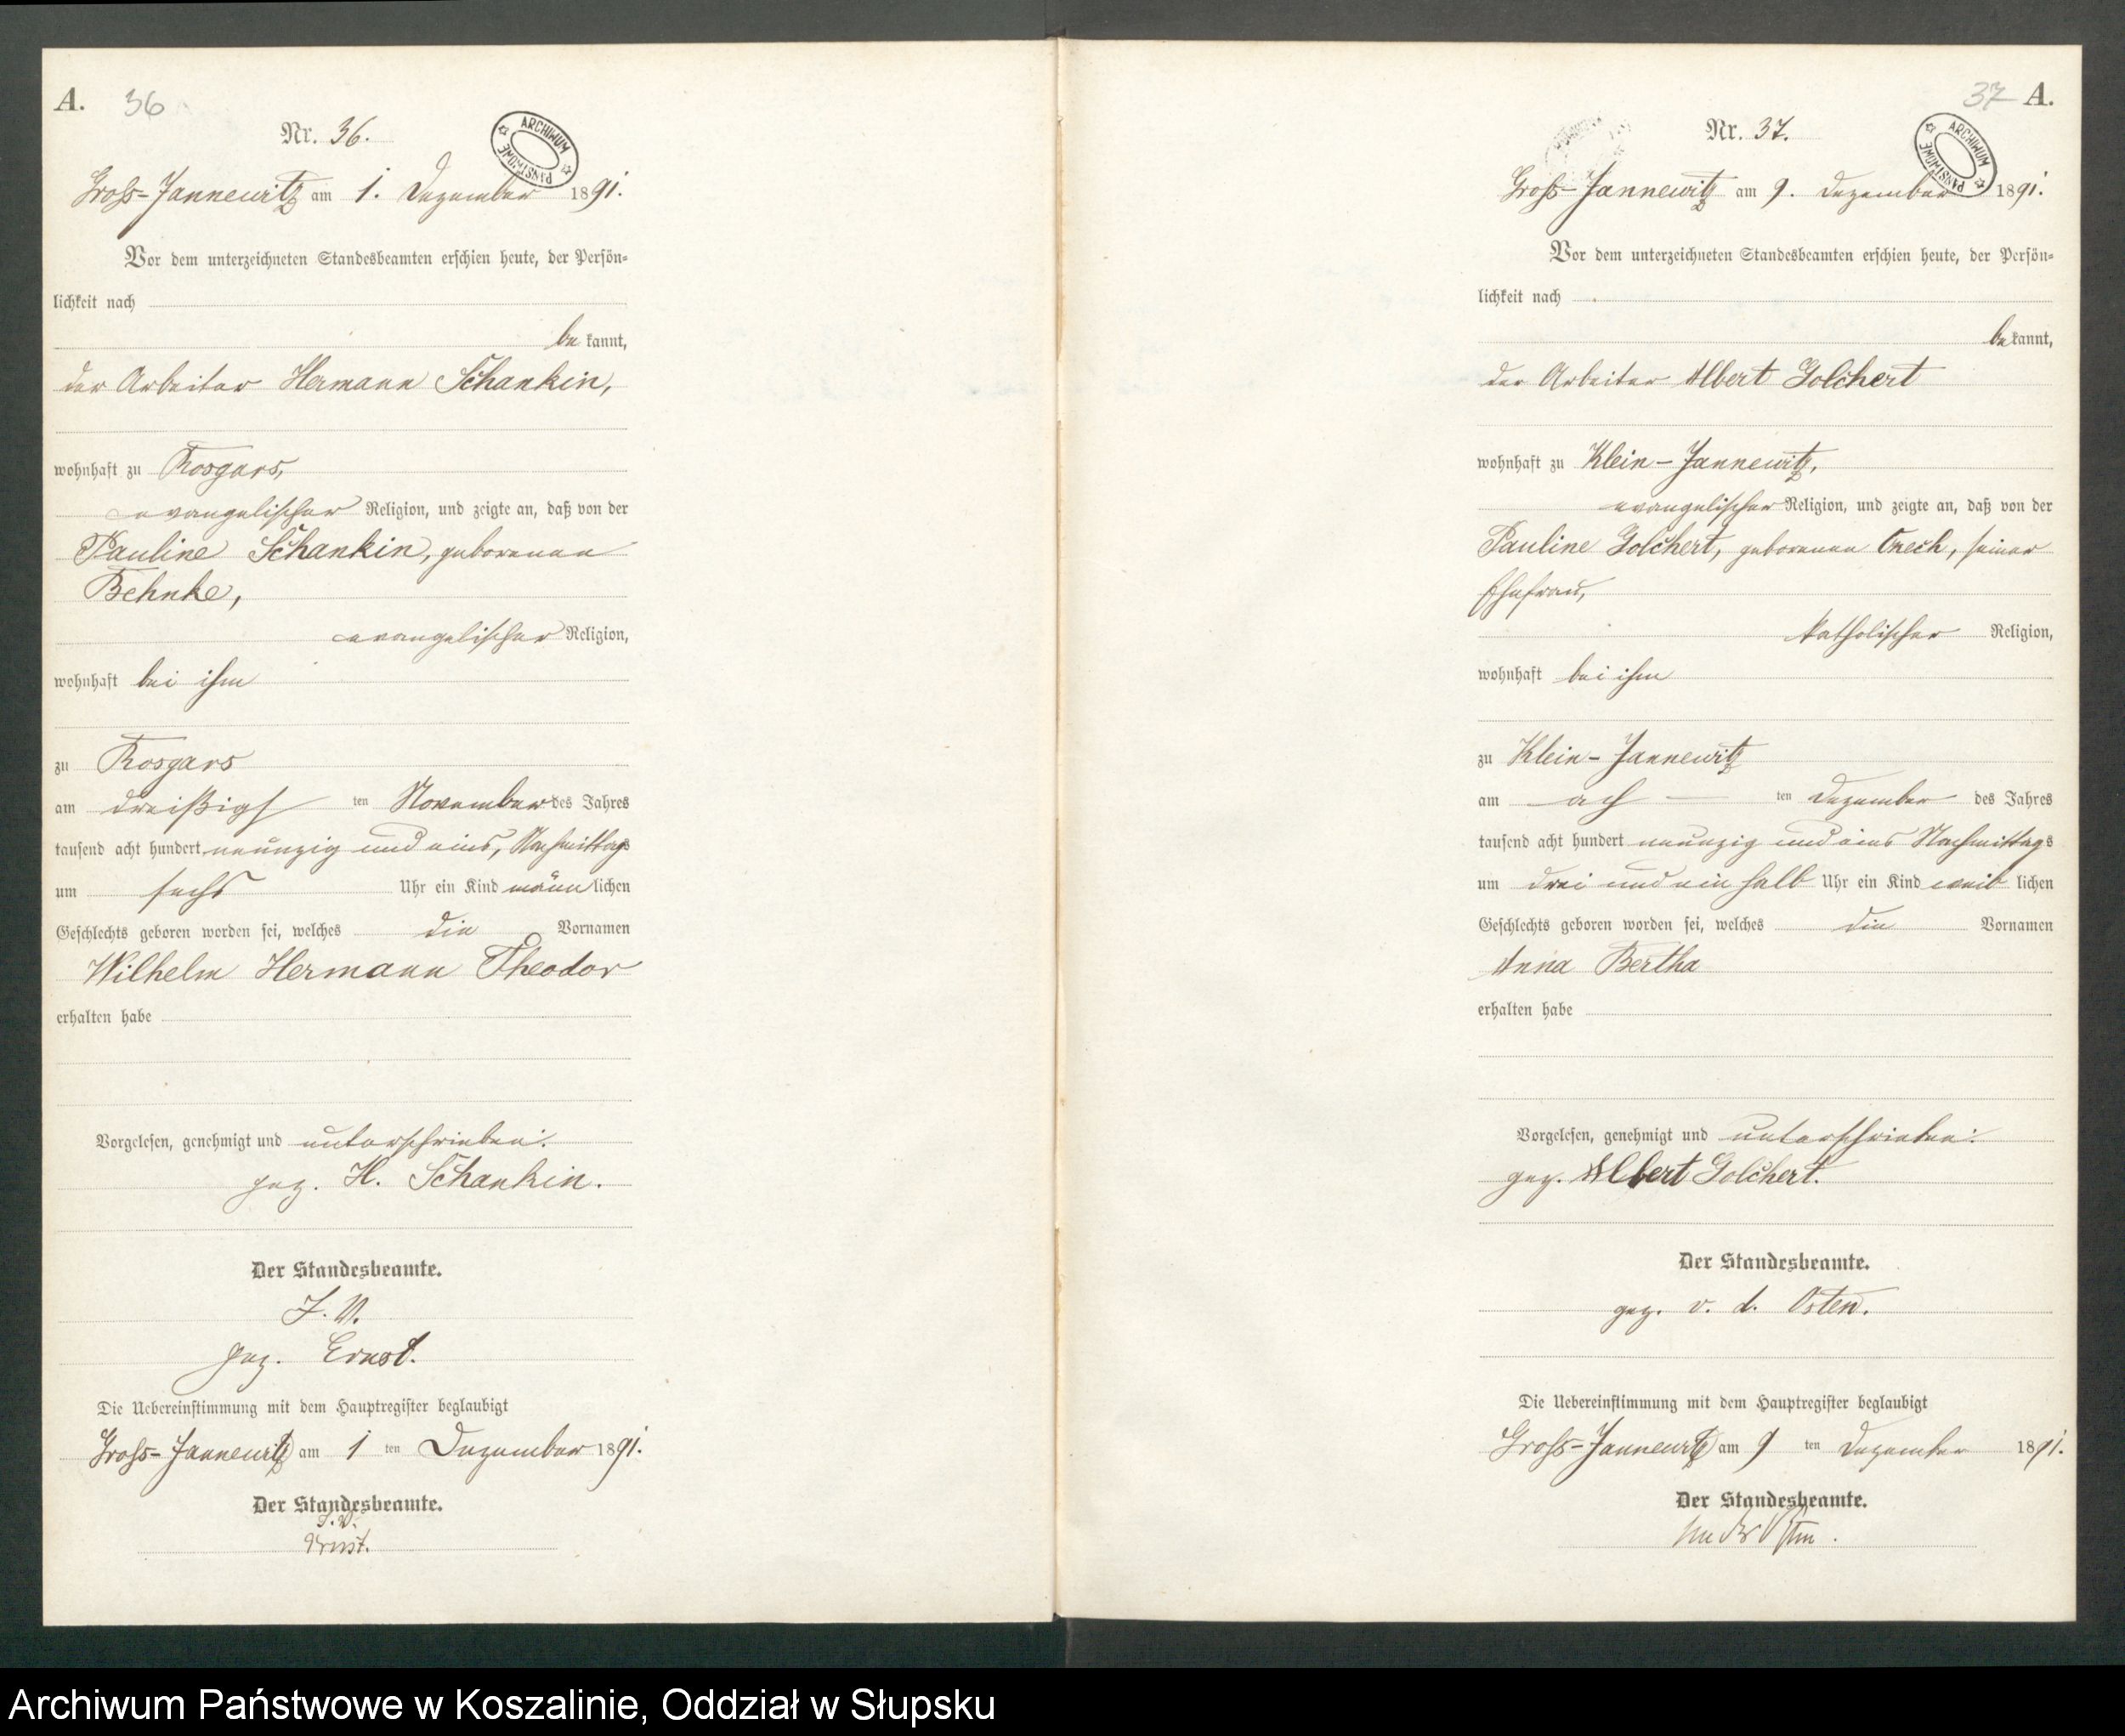 A. 36
Nr. 36.
ARCHIWUM PAŃSTWOWE
Gross-Jannewitz am 1. Dezember 1891.
Vor dem unterzeichneten Standesbeamten erschien heute, der Persön=
lichkeit nach
be kannt,
der Arbeiter Hermann Schankin,
wohnhaft zu Rosgars,
evangelischer Religion, und zeigte an, daß von der
Pauline Schankin, geborenen
Behnke,
evangelischer Religion,
wohnhaft bei ihm
zu Rosgars
am dreißigs ten November des Jahres
tausend acht hundert neunzig und eins, Nachmittags
um sechs Uhr ein Kind männ lichen
Geschlechts geboren worden sei, welches die Vornamen
Wilhelm Hermann Theodor
erhalten habe
Vorgelesen, genehmigt und unterschrieben:
gez. H. Schankin.
Der Standesbeamte.
J. V.
gez. Ernst.
Die Uebereinstimmung mit dem Hauptregister beglaubigt
Gross-Jannewitz am 1 ten Dezember 1891.
Der Standesbeamte.
J. V.
Ernst.
37 A.
Nr. 37.
ARCHIWUM PAŃSTWOWE
Gross-Jannewitz am 9. Dezember 1891.
Vor dem unterzeichneten Standesbeamten erschien heute, der Persön=
lichkeit nach
be kannt,
der Arbeiter Albert Golchert
wohnhaft zu Klein-Jannewitz,
evangelischer Religion, und zeigte an, daß von der
Pauline Golchert, geborenen seiner
Ehefrau,
katholischer Religion,
wohnhaft bei ihm
zu Klein-Jannewitz
am ach ten Dezember des Jahres
tausend acht hundert neunzig und eins Nachmittags
um drei und ein halb Uhr ein Kind weib lichen
Geschlechts geboren worden sei, welches die Vornamen
Anna Bertha
erhalten habe
Vorgelesen, genehmigt und unterschrieben:
gez. Albert Golchert.
Der Standesbeamte.
gez. v. d. Osten.
Die Uebereinstimmung mit dem Hauptregister beglaubigt
Gross-Jannewitz am 9 ten Dezember 1891.
Der Standesbeamte.
von der Osten.
Archiwum Państwowe w Koszalinie, Oddział w Słupsku